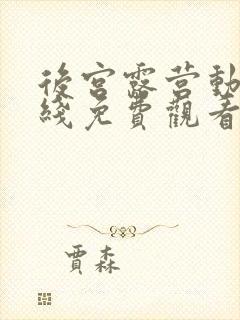 後宮露营動
綫免費觀看
賈森